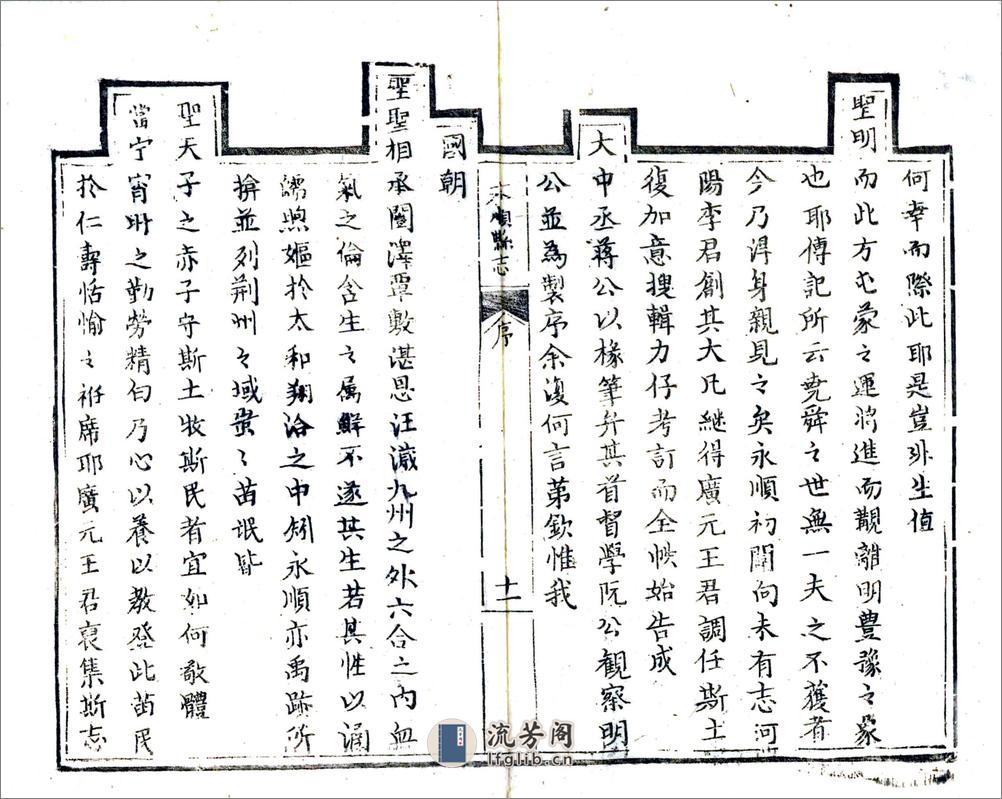 何幸而際此耶是豈非生值
聖明而此方屯蒙之運將進而覩離明豐豫之象
也耶傳記所云堯舜之世無一夫之不獲者
今乃淂身親見之矣永順初闢向未有志河
陽李君創其大凡継得廣元王君調任斯土
復加意搜輯力仔考訂而全帙始告成
大
中丞蔣公以椽筆弁其首督學阮公観察明
公並為製序余復何言第欽惟我
永順縣志 序 十一
國朝
聖聖相承闓澤覃敷湛恩汪濊九州之外六合之内血
氣之倫含生之属鮮不遂其生若其性以涵
濡煦嫗扵太和翔洽之中矧永順亦禹跡所
揜並列荆州之域蚩〻苗氓皆
聖天子之赤子守斯土牧斯民者宜如何敬體
當宁宵旰之勤勞精白乃心以養以教登此苗民
扵仁壽恬愉之袵席耶廣元王君裒集斯志
流芳阁
lfglib.cn